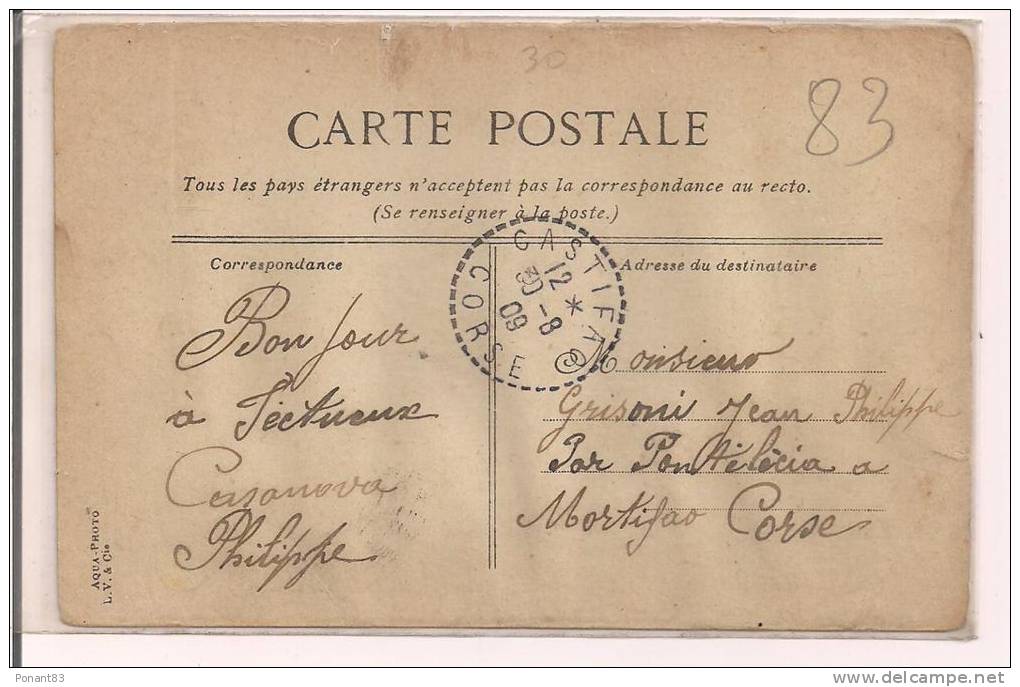 30
83
CARTE POSTALE
Tous les pays étrangers n'acceptent pas la correspondance au recto.
(Se renseigner à la poste.)
Correspondance
Adresse du destinataire
CASTIFAO
12 *
30 -8
09
CORSE
Bon Jour
à fèctueux
Casanova
Philippe
Monsieur
Grisoni Jean Philippe
Par Pontélécia a
Mortifao Corse
AQUA-PHOTO
L. V. & Cie
Ponant83
www.delcampe.net